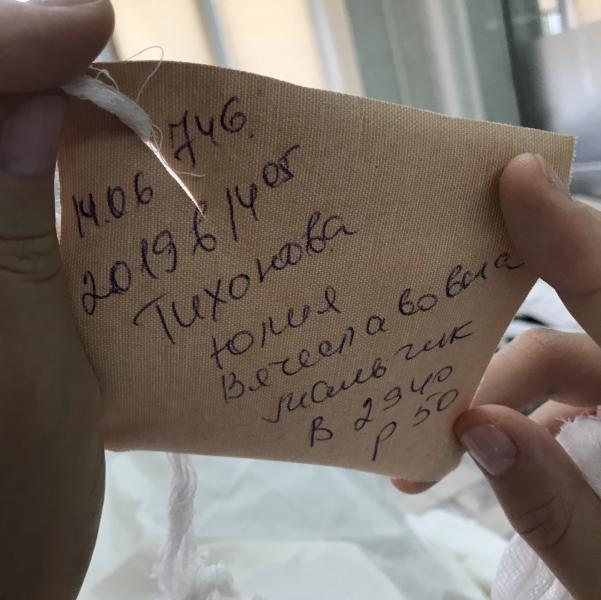 746.
14.06
2019 в 14 05
Тихонова
Юлия
Вячеславовна
мальчик
В 2940
р 50